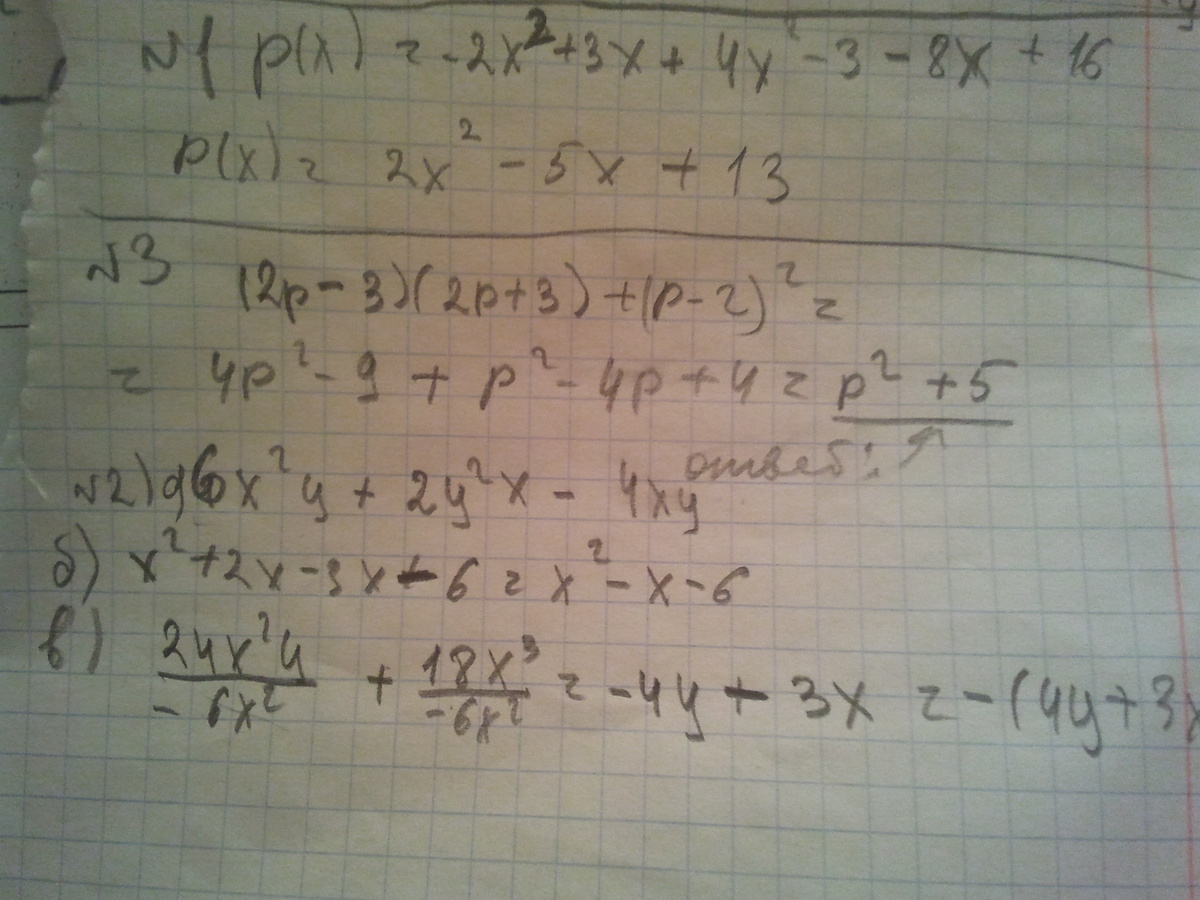 №1 p(x) = -2x²+3x+ 4x² -3 - 8x + 16
p(x) = 2x² - 5x + 13
№3 (2p-3)(2p+3)+(p-2)² =
= 4p²-9 + p²-4p+4 = p² +5
ответ: ↗
№2) а) 6x²y + 2y²x - 4xy
б) x²+2x-3x-6 = x²-x-6
в) \frac{24x²y}{-6x²} + \frac{18x³}{-6x²} = -4y - 3x = -(4y+3x